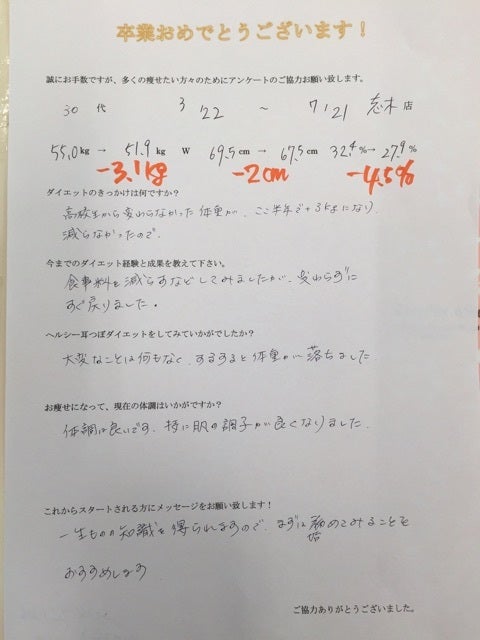 卒業おめでとうございます！
誠にお手数ですが、多くの痩せたい方々のためにアンケートのご協力お願い致します。
30 代 3/22 ～ 7/21 志木 店
55.0 kg → 51.9 kg W 69.5 cm → 67.5 cm 32.4 %→ 27.9 %
-3.1kg -2cm -4.5%
ダイエットのきっかけは何ですか？
高校生から変わらなかった体重が、ここ半年で+3kgになり
減らなかったので。
今までのダイエット経験と成果を教えて下さい。
食事料を減らすなどしてみましたが、変わらずに
すぐ戻りました。
ヘルシー耳つぼダイエットをしてみていかがでしたか？
大変なことは何もなく、するすると体重が落ちました
お痩せになって、現在の体調はいかがですか？
体調は良いです、特に肌の調子が良くなりました。
これからスタートされる方にメッセージをお願い致します！
一生ものの知識を得られますので、まずは始めてみることを
おすすめします
ご協力ありがとうございました。